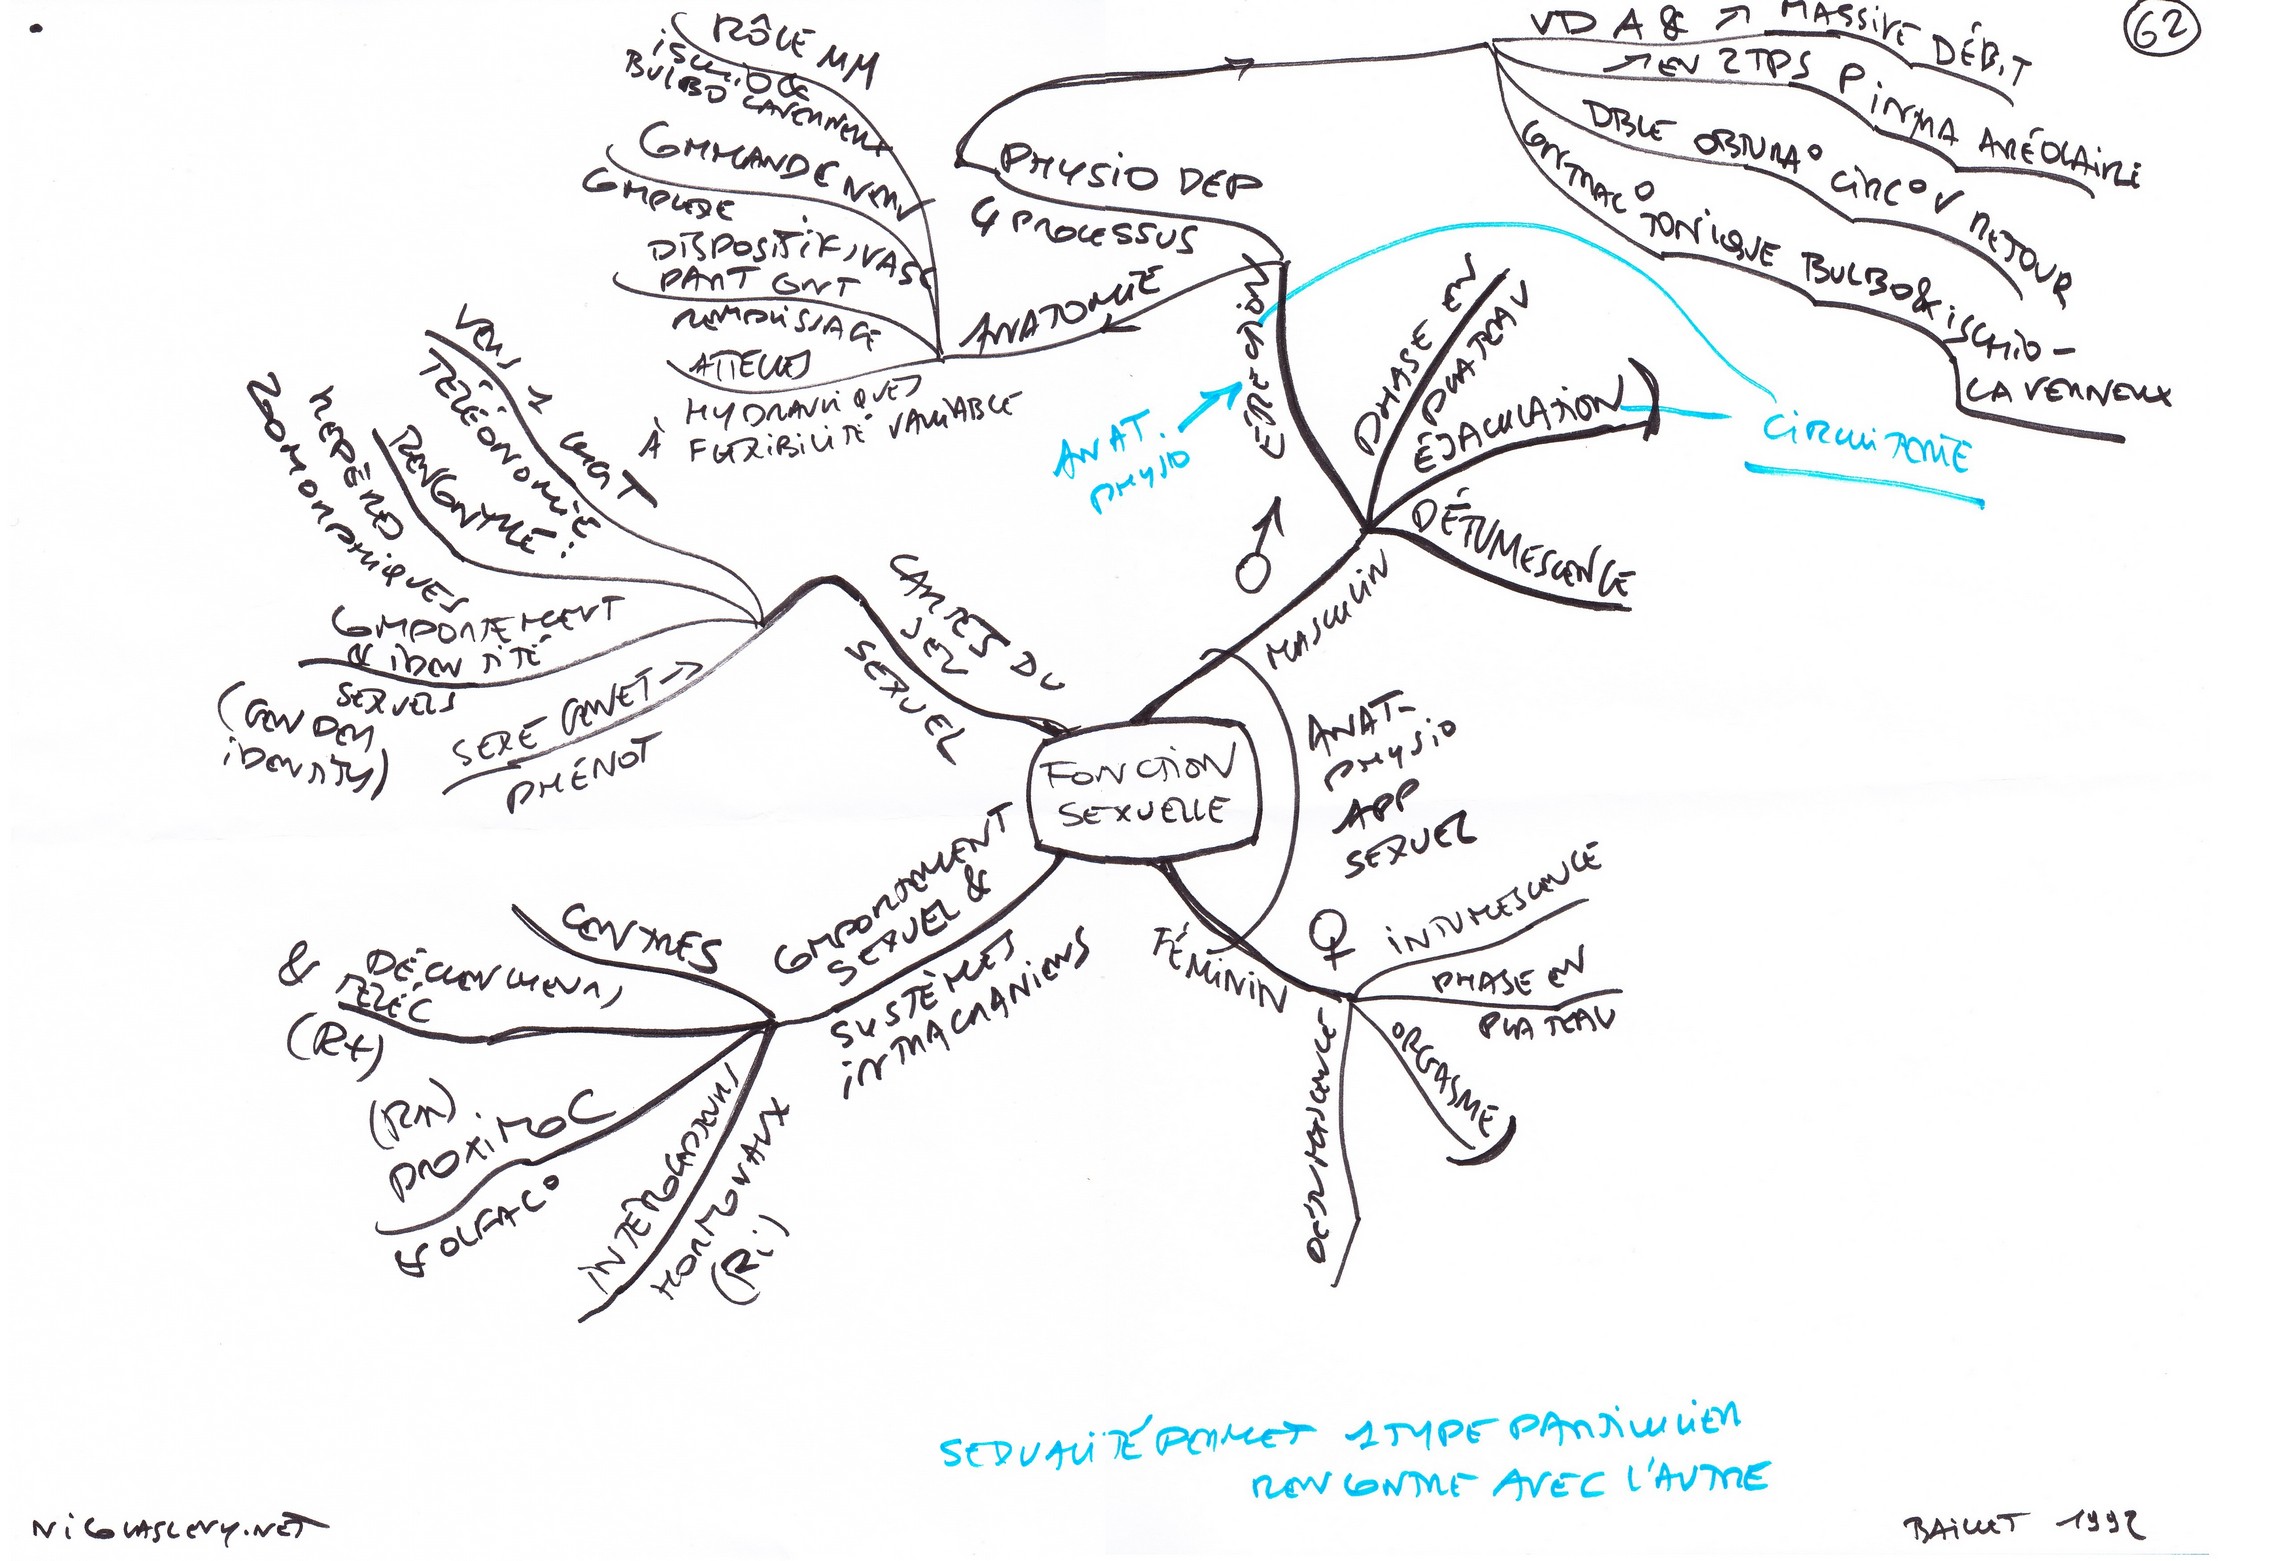 62
RÔLE MM
ISCHIO &
BULBO CAVERNEUX
COMMANDE NERV
COMPLEXE
DISPOSITIFS VASC
PART CONT
REMPLISSAGE
ATTELLES
HYDRAULIQUES
À FLEXIBILITÉ VARIABLE
ANATOMIE
PHYSIO DEP
4 PROCESSUS
VD A & ↗ MASSIVE DÉBIT
↗ EN 2 TPS P INTRA ARÉOLAIRE
DBLE OBTURA° CIRC° V RETOUR
CONTRAC° TONIQUE BULBO & ISCHIO-
CAVERNEUX
ÉRECTION
ANAT.
PHYSIO
PHASE EN
PLATEAU
ÉJACULATION
DÉTUMESCENCE
CIRCUITERIE
♂
MASCULIN
ANAT-
PHYSIO
APP
SEXUEL
FONCTION
SEXUELLE
CARTES DU
SEXUEL
VERS 1
TÉLÉONOMIE
RENCONTRE:
REPÈRES
ZOOMORPHIQUES
COMPORTEMENT
& IDENTITÉ
SEXUELS
(GENDER
IDENTITY)
SEXE GÉNET →
PHÉNOT
COMPORTEMENT
SEXUEL &
SYSTÈMES
INTRACRANIENS
CENTRES
& DÉCLENCHEURS
TÉLÉC
(RX)
(RN)
PROXIMOC
& OLFAC°
INTÉROCEPTEURS
HORMONAUX
(RI)
FÉMININ
♀
INTUMESCENCE
PHASE EN
PLATEAU
ORGASME
DÉTUMESCENCE
SEXUALITÉ PERMET 1 TYPE PARTICULIER
RENCONTRE AVEC L'AUTRE
NICOLASLEVY.NET
BAILLET 1992